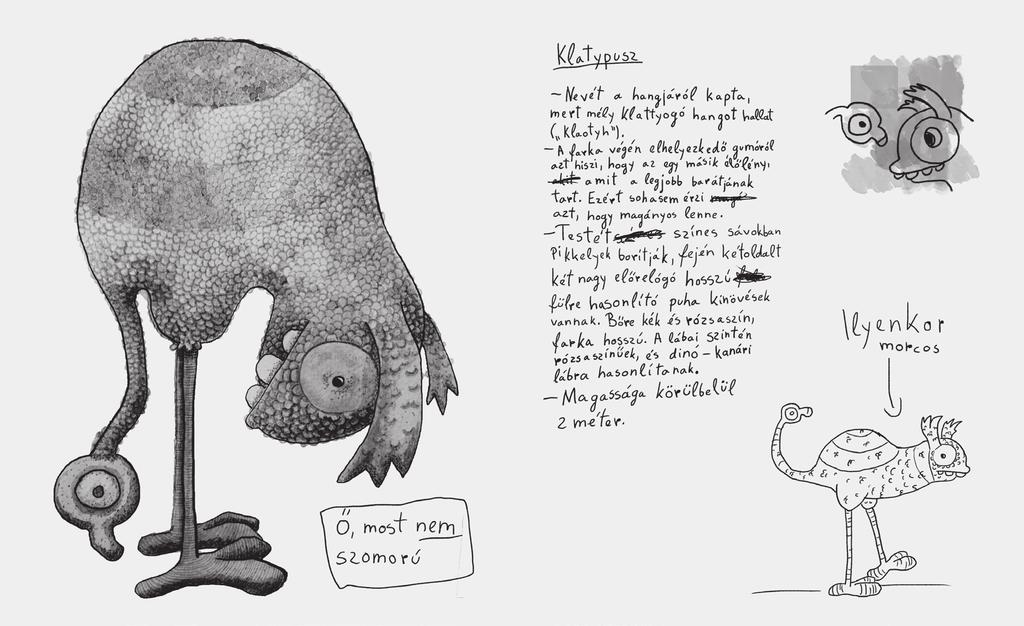 Klatypusz
– Nevét a hangjáról kapta,
mert mély klattyogó hangot hallat
(„klaotyh").
– A farka végén elhelyezkedő gumóról
azt hiszi, hogy az egy másik élőlény,
amit a legjobb barátjának
tart. Ezért sohasem érzi
azt, hogy magányos lenne.
– Testét színes sávokban
pikkelyek borítják, fején kétoldalt
két nagy előrelógó hosszú
fülre hasonlító puha kinövések
vannak. Bőre kék és rózsaszín,
farka hosszú. A lábai szintén
rózsaszínűek, és dinó – kanári
lábra hasonlítanak.
– Magassága körülbelül
2 méter.
Ilyenkor
morcos
Ő, most nem
szomorú